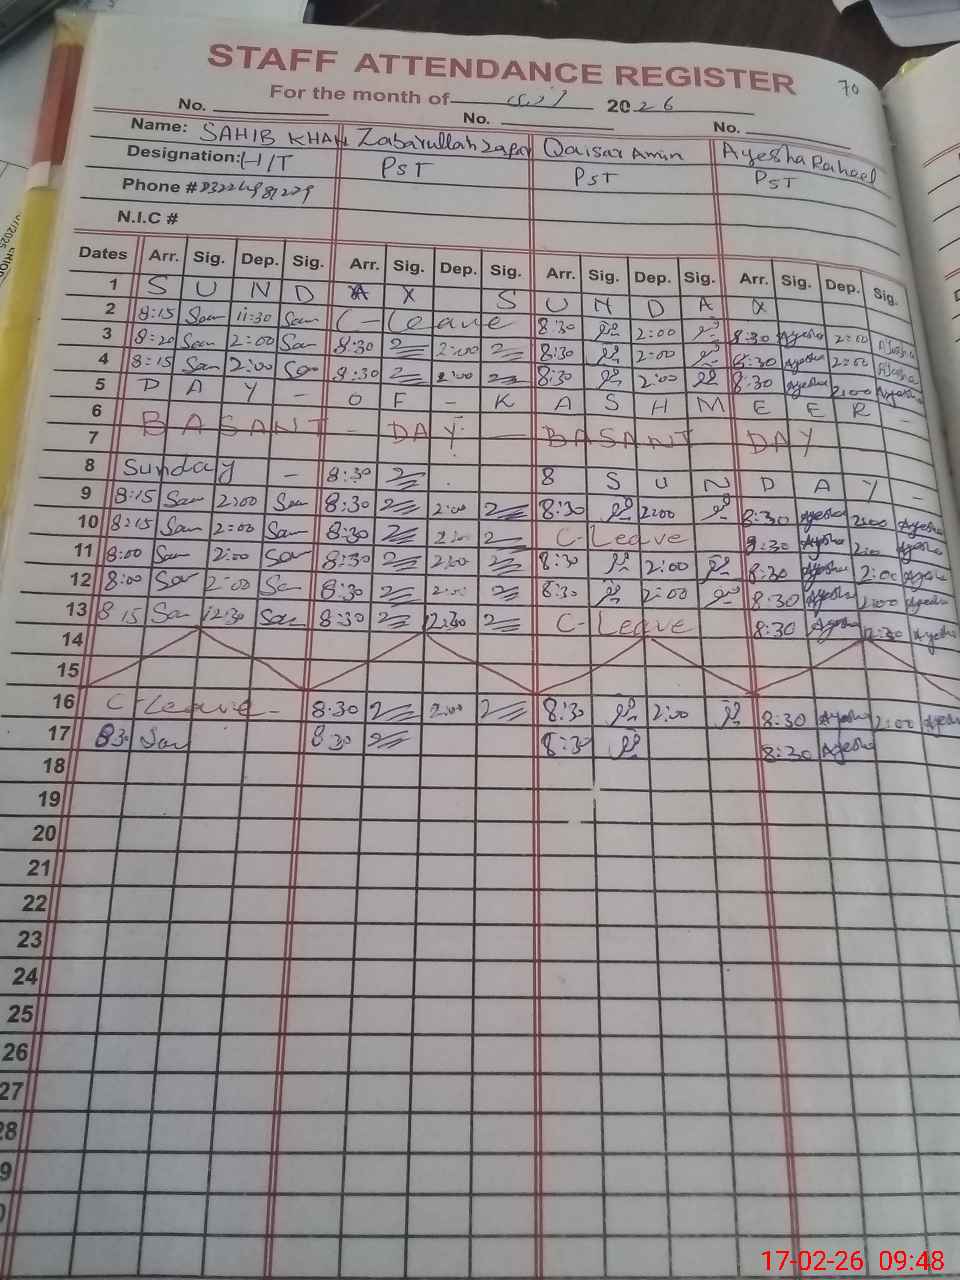 STAFF ATTENDANCE REGISTER
70
For the month of 2026
No. No. No.
Name: SAHIB KHAN Zabarullah Zafar Qaisar Amin Ayesha Raheel
Designation: H/T PST PST PST
Phone #
N.I.C #
Dates Arr. Sig. Dep. Sig. Arr. Sig. Dep. Sig. Arr. Sig. Dep. Sig. Arr. Sig. Dep. Sig.
1 S U N D A Y S U N D A Y
2 8:15 San 11:30 San C-Leave 8:30 2:00 8:30 Ayesha 2:00 Ayesha
3 8:20 San 2:00 San 8:30 2:00 8:30 2:00 8:30 Ayesha 2:00 Ayesha
4 8:15 San 2:00 San 8:30 2:00 8:30 2:00 8:30 Ayesha 2:00 Ayesha
5 D A Y - O F - K A S H M E E R -
6 BASANT - DAY - BASANT DAY
7
8 Sunday - 8:30 8 S U N D A Y -
9 8:15 San 2:00 San 8:30 2:00 8:30 2:00 8:30 Ayesha 2:00 Ayesha
10 8:15 San 2:00 San 8:30 2:00 C-Leave 8:30 Ayesha 2:00 Ayesha
11 8:00 San 2:00 San 8:30 2:00 8:30 2:00 8:30 Ayesha 2:00 Ayesha
12 8:00 San 2:00 San 8:30 2:00 8:30 2:00 8:30 Ayesha 2:00 Ayesha
13 8:15 San 12:30 San 8:30 12:30 C-Leave 8:30 Ayesha 12:30 Ayesha
14
15
16 C-Leave - 8:30 2:00 8:30 2:00 8:30 Ayesha 2:00 Ayesha
17 830 San 8:30 8:30 8:30 Ayesha
18
19
20
21
22
23
24
25
26
27
28
9
0
17-02-26 09:48